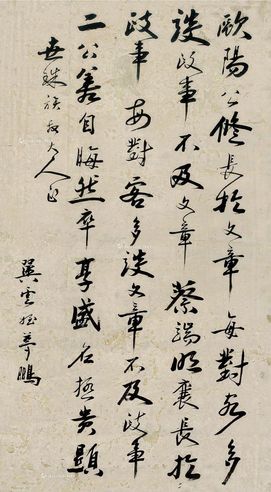 歐陽公修長於文章每對客多
談政事不及文章蔡端明襄長於
政事每對客多談文章不及政事
二公善自晦然卒享盛名極貴顯
世錄族叔大人正
翼雲程鵬